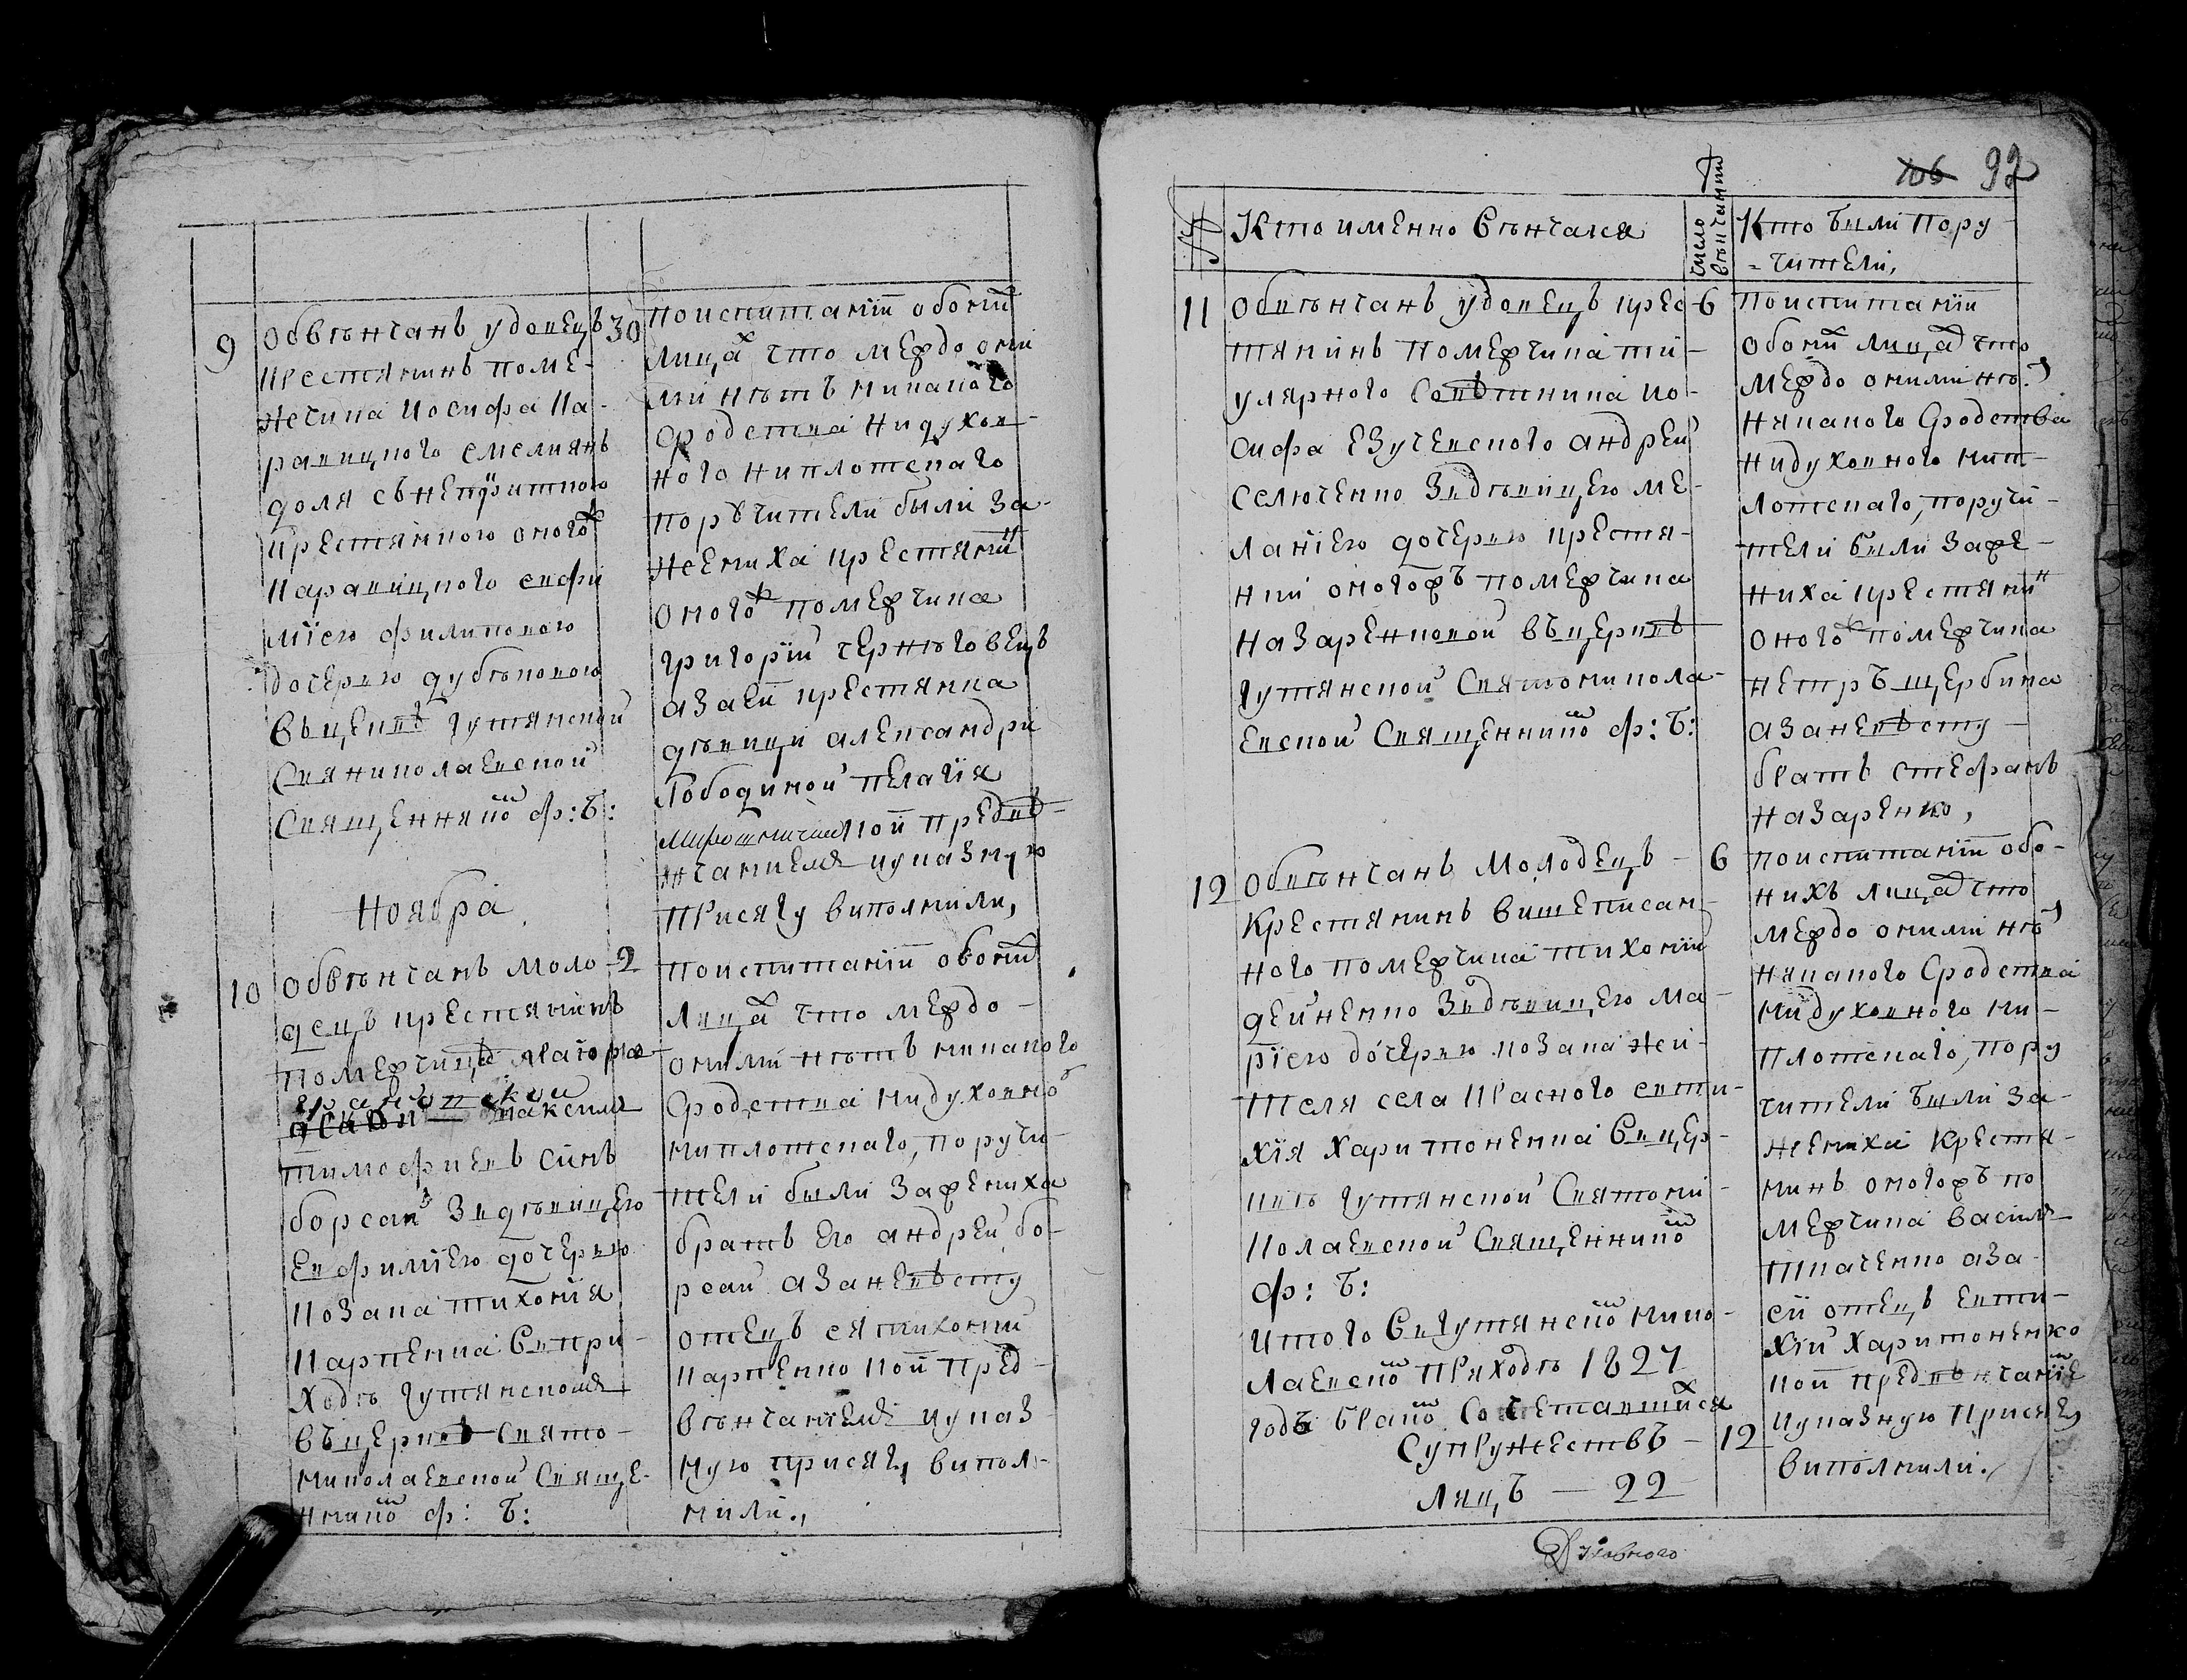 9
обвѣнчанъ удовецъ 30
крестянинъ поме-
жчика Иосифа Ка-
равицкого емелиянъ
доля съ
крестянкою оногож
Каравицкого евфи
міею филиповою
дочерью дубѣковою
въ церквѣ Чутянской
Свяниколаевской
Священнико͠м ф: Б:
по испитаніи обоих
лицах что между они
ми нѣтъ никакого
сродства ни духов-
ного ни плотскаго
порѣчители были за
жениха крестянин
оногож помежчика
григорій чернѣговецъ
а за ей крестянка
дѣвици александри
Лободиной пелагія
Мирошниченкой предвѣ-
нчаниемя и указную
присягу виполнили,
Ноября
10
обвѣнчанъ моло- 2
децъ крестянинъ
помежчицѣ маіорш
максимъ
тимофиевъ синъ
борсай З дѣвицею
Евфиміею дочерью
Козака тихонія
Карпенка Въ при-
ходѣ Чутянскомя
въ церквѣ Свято-
николаевской Свяще-
ннико͠м ф: Б:
по испитаніи обоних
лицах что между
оними нѣтъ никакого
Сродства ни духовно
ни плотскаго, поручи-
тели были за жениха
братъ его андрей бо-
рсай а за невѣсту
отецъ ея тихоний
Карпенко кои пред
вѣнчаніемя и указ-
ную присягу випол-
нили.,
106 92
№
Кто именно вѣнчался
число вѣнчанія
Кто были пору-
=чители,
11
Обвѣнчанъ удовецъ крес- 6
тянинъ помежчика ти-
улярного Совѣтника Ио-
сифа Езучевского андрей
Селюченко З дѣвицею ме-
ланіею дочерью крестя-
нки оногожъ помежчика
назаренковой въ церквѣ
Чутянской Святоникола-
евской Священнико͠м ф: Б:
по испитаніи
обоних лицах что
между онимы нѣт
някакого сродства
ни духовного нип-
лотскаго, поручи-
тели были за же-
ниха крестянин
оногож помежчика
петръ щербина
а за невѣсту
братъ Стефанъ
назаренко,
12
Обвѣнчанъ молодецъ - 6
Крестянинъ вишеписан-
ного помежчика тихоній
дейненко З дѣвицею ма-
ріею дочерью козака жи-
теля села Красного евти-
хія харитоненка Въ цер-
квѣ Чутянской Святони-
колаевской Священнико͠м
ф: Б:
по испитаніи обо-
нихъ лицах что
между оними нѣт
някакого Сродства
ни духовного ни-
плотскаго, пору
чители были за-
жениха Крестя-
нинъ оногожъ по
межчика василь
ткаченко а за
ей отецъ евти-
хій Харитоненко
кои предвѣнчаніе
и указную присягу
виполнили.
итого В Чутянско͠й нико-
лаевско͠й приходѣ 1827
года брако͠м Сочетавшихся
Супружествъ - 12
Лицъ - 22